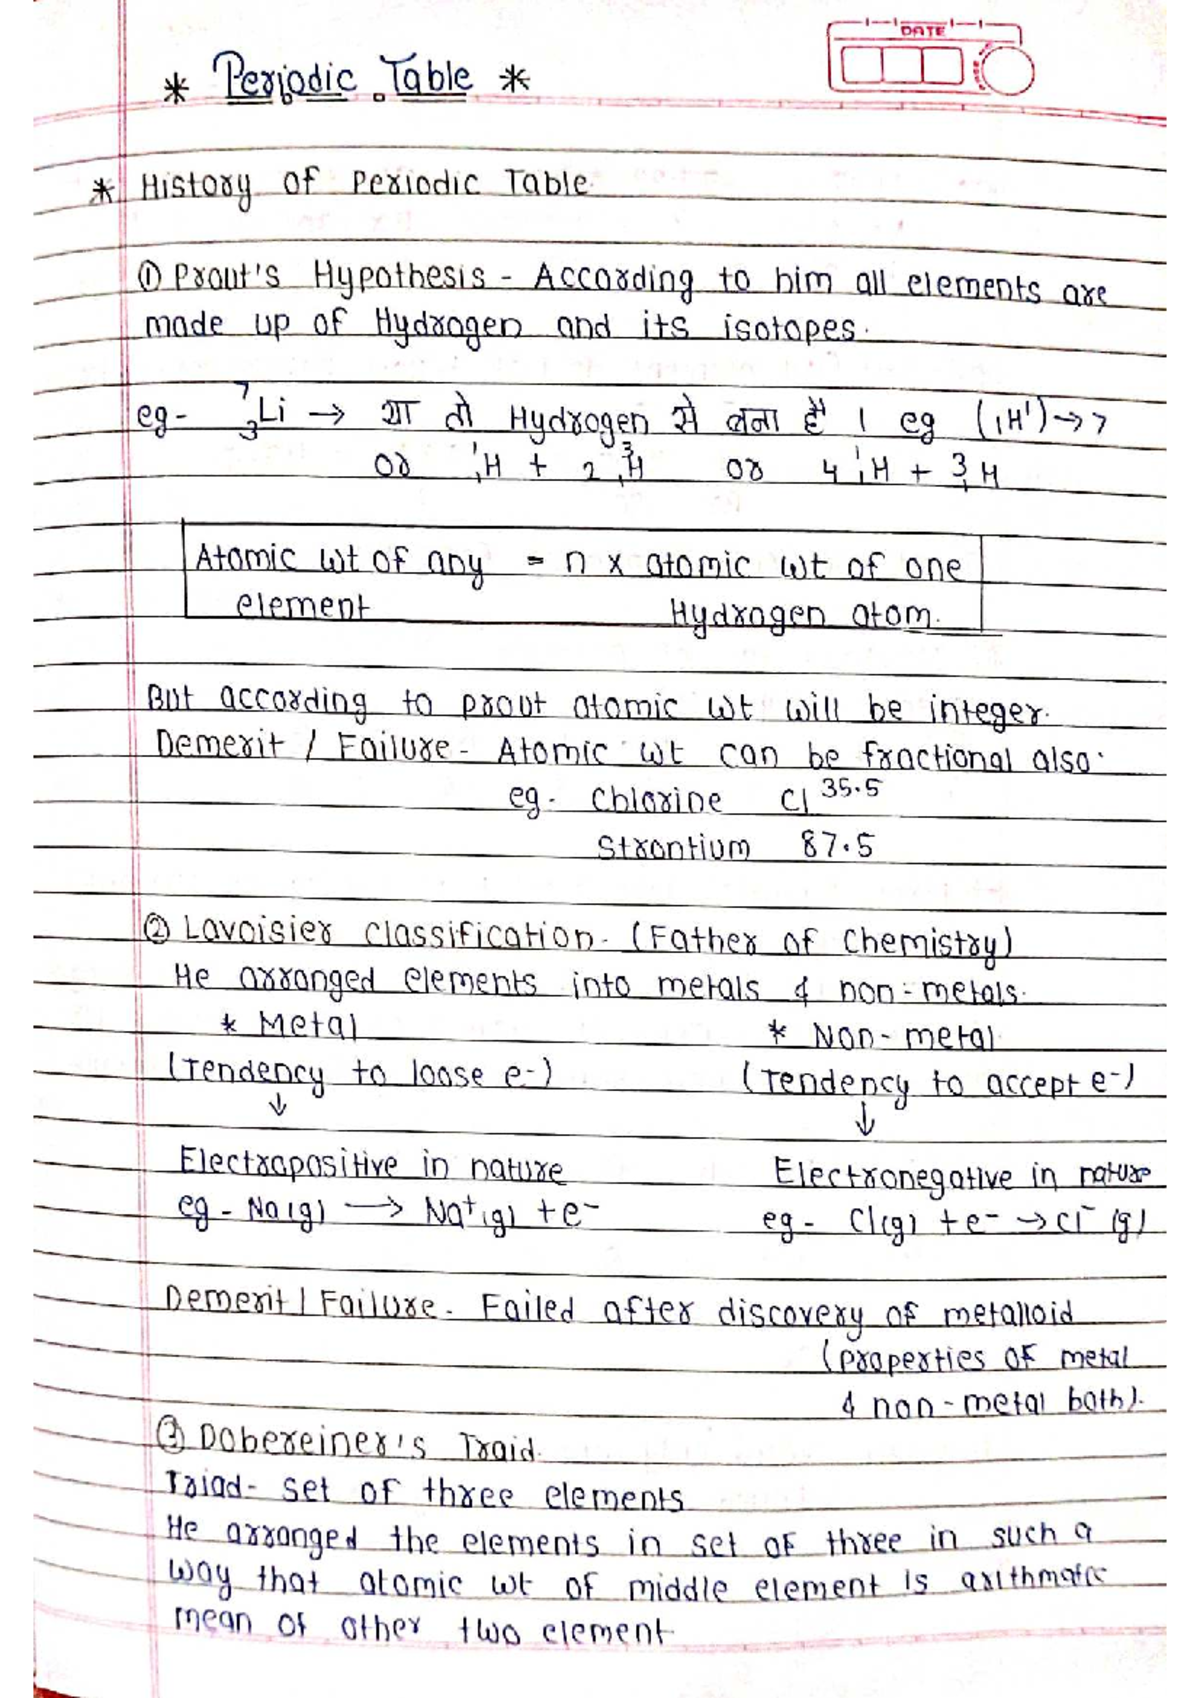 DATE
* Periodic Table *
* History of Periodic Table.
① Prout's Hypothesis - According to him all elements are
made up of Hydrogen and its isotopes.
eg- ⁷₃Li → या तो Hydrogen से बना हैं । eg (₁H¹) → 7
or ¹₁H + 2 ³₁H or 4 ¹₁H + ³₁H
Atomic wt of any = n x atomic wt of one
element Hydrogen atom.
But according to prout atomic wt will be integer.
Demerit / Failure - Atomic wt can be fractional also.
eg. Chlorine Cl 35.5
Strontium 87.5
② Lavoisier classification. (Father of Chemistry)
He arranged elements into metals & non-metals.
* Metal * Non-metal
(Tendency to loose e-) (Tendency to accept e-)
↓ ↓
Electropositive in nature Electronegative in nature
eg - Na(g) → Na⁺(g) + e⁻ eg - Cl(g) + e⁻ → Cl⁻(g)
Demerit / Failure - Failed after discovery of metalloid
(properties of metal
& non-metal both).
③ Dobereiner's Traid.
Triad - set of three elements
He arranged the elements in set of three in such a
way that atomic wt of middle element is arithmatic
mean of other two element